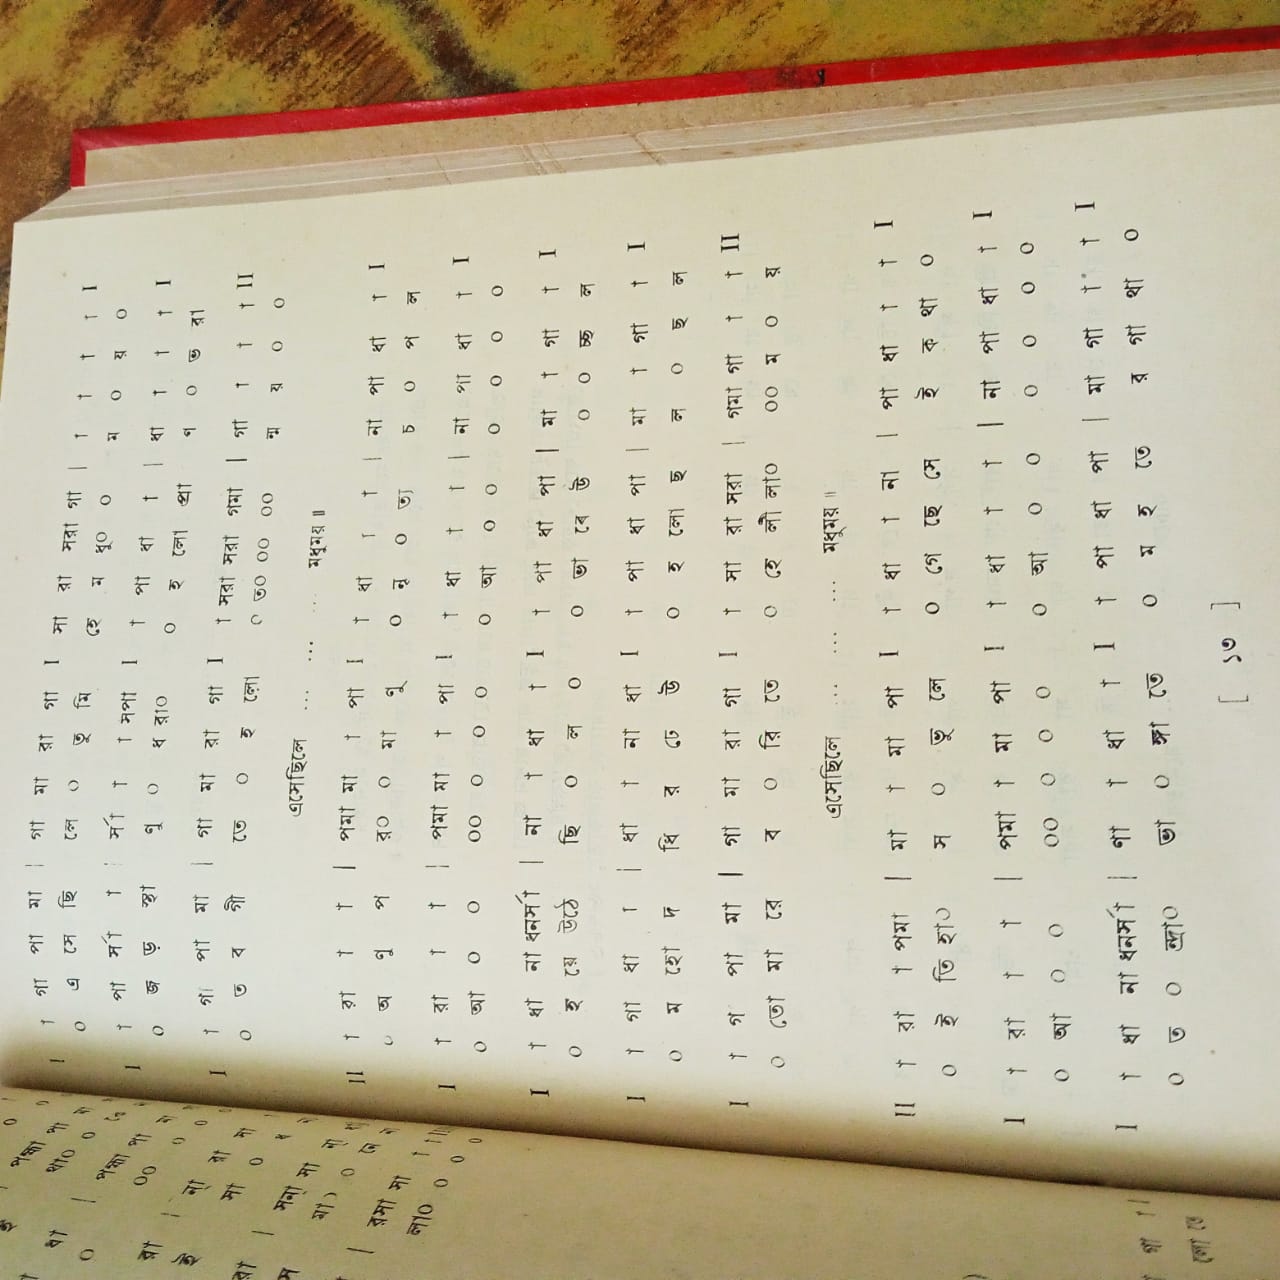 I া গা পা মা | গা মা রা গা I সা রা সরা গা | া া া া I
০ এ সে ছি লে ০ তু মি হে ম ধু০ ০ ম ০ য় ০
I া পা র্সা া | র্সা া া সপা I া পা ধা া | ধা া া া I
০ জ ড় স্থা ণু ০ ধ রা০ ০ হ লো প্রা ণ ০ ভ রা
I া গা পা মা | গা মা রা গা I া সরা সরা গমা | গা া া া II
০ ত ব গী তে ০ হ লো ০ ত০ ০০ ০০ ন্ম য় ০ ০
এসেছিলে ... ... ... মধুময় ॥
II া রা া া | পমা মা া পা I া ধা া া | না পা ধা া I
০ অ ণু প র০ ০ মা ণু ০ নৃ ০ ত্য চ ০ প ল
I া রা া া | পমা মা া পা I া ধা া া | না পা ধা া I
০ আ ০ ০ ০০ ০ ০ ০ ০ আ ০ ০ ০ ০ ০ ০
I া ধা না ধনর্সা | না া ধা া I া পা ধা পা | মা া গা া I
০ হ য়ে উঠে ছি ০ ল ০ ০ ভা বে উ ০ ০ চ্ছ ল
I া গা ধা া | ধা া না ধা I া পা ধা পা | মা া গা া I
০ ম হো দ ধি র ঢে উ ০ হ লো ছ ল ০ ছ ল
I া গ পা মা | গা মা রা গা I া সা রা সরা | গমা গা া া II
০ তো মা রে ব ০ রি তে ০ হে লী লা০ ০০ ম ০ য়
এসেছিলে ... ... ... মধুময় ॥
II া রা া পমা | মা া মা পা I া ধা া না | পা ধা া া I
০ ই তি হা০ স ০ ভু লে ০ গে ছে সে ই ক থা ০
I া রা া া | পমা া মা পা I া ধা া া | না পা ধা া I
০ আ ০ ০ ০০ ০ ০ ০ ০ আ ০ ০ ০ ০ ০ ০
I া ধা না ধনর্সা | ণা া ধা া I া পা ধা পা | মা গা া া I
০ ত ০ ন্দ্রা০ ভা ০ ঙ্গা তে ০ ম হ তে র গা থা ০
[ ১৩ ]